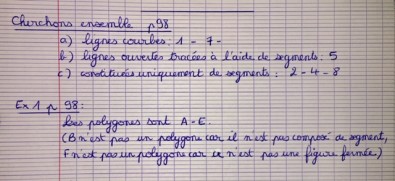 Cherchons ensemble p98
a) lignes courbes: 1 - 7 -
b) lignes ouvertes tracées à l'aide de segments: 5
c) constituées uniquement de segments: 2 - 4 - 8
Ex 1 p 98:
Les polygones sont A - E.
(B n'est pas un polygone car il n'est pas composé de segment,
F n'est pas un polygone car ce n'est pas une figure fermée)